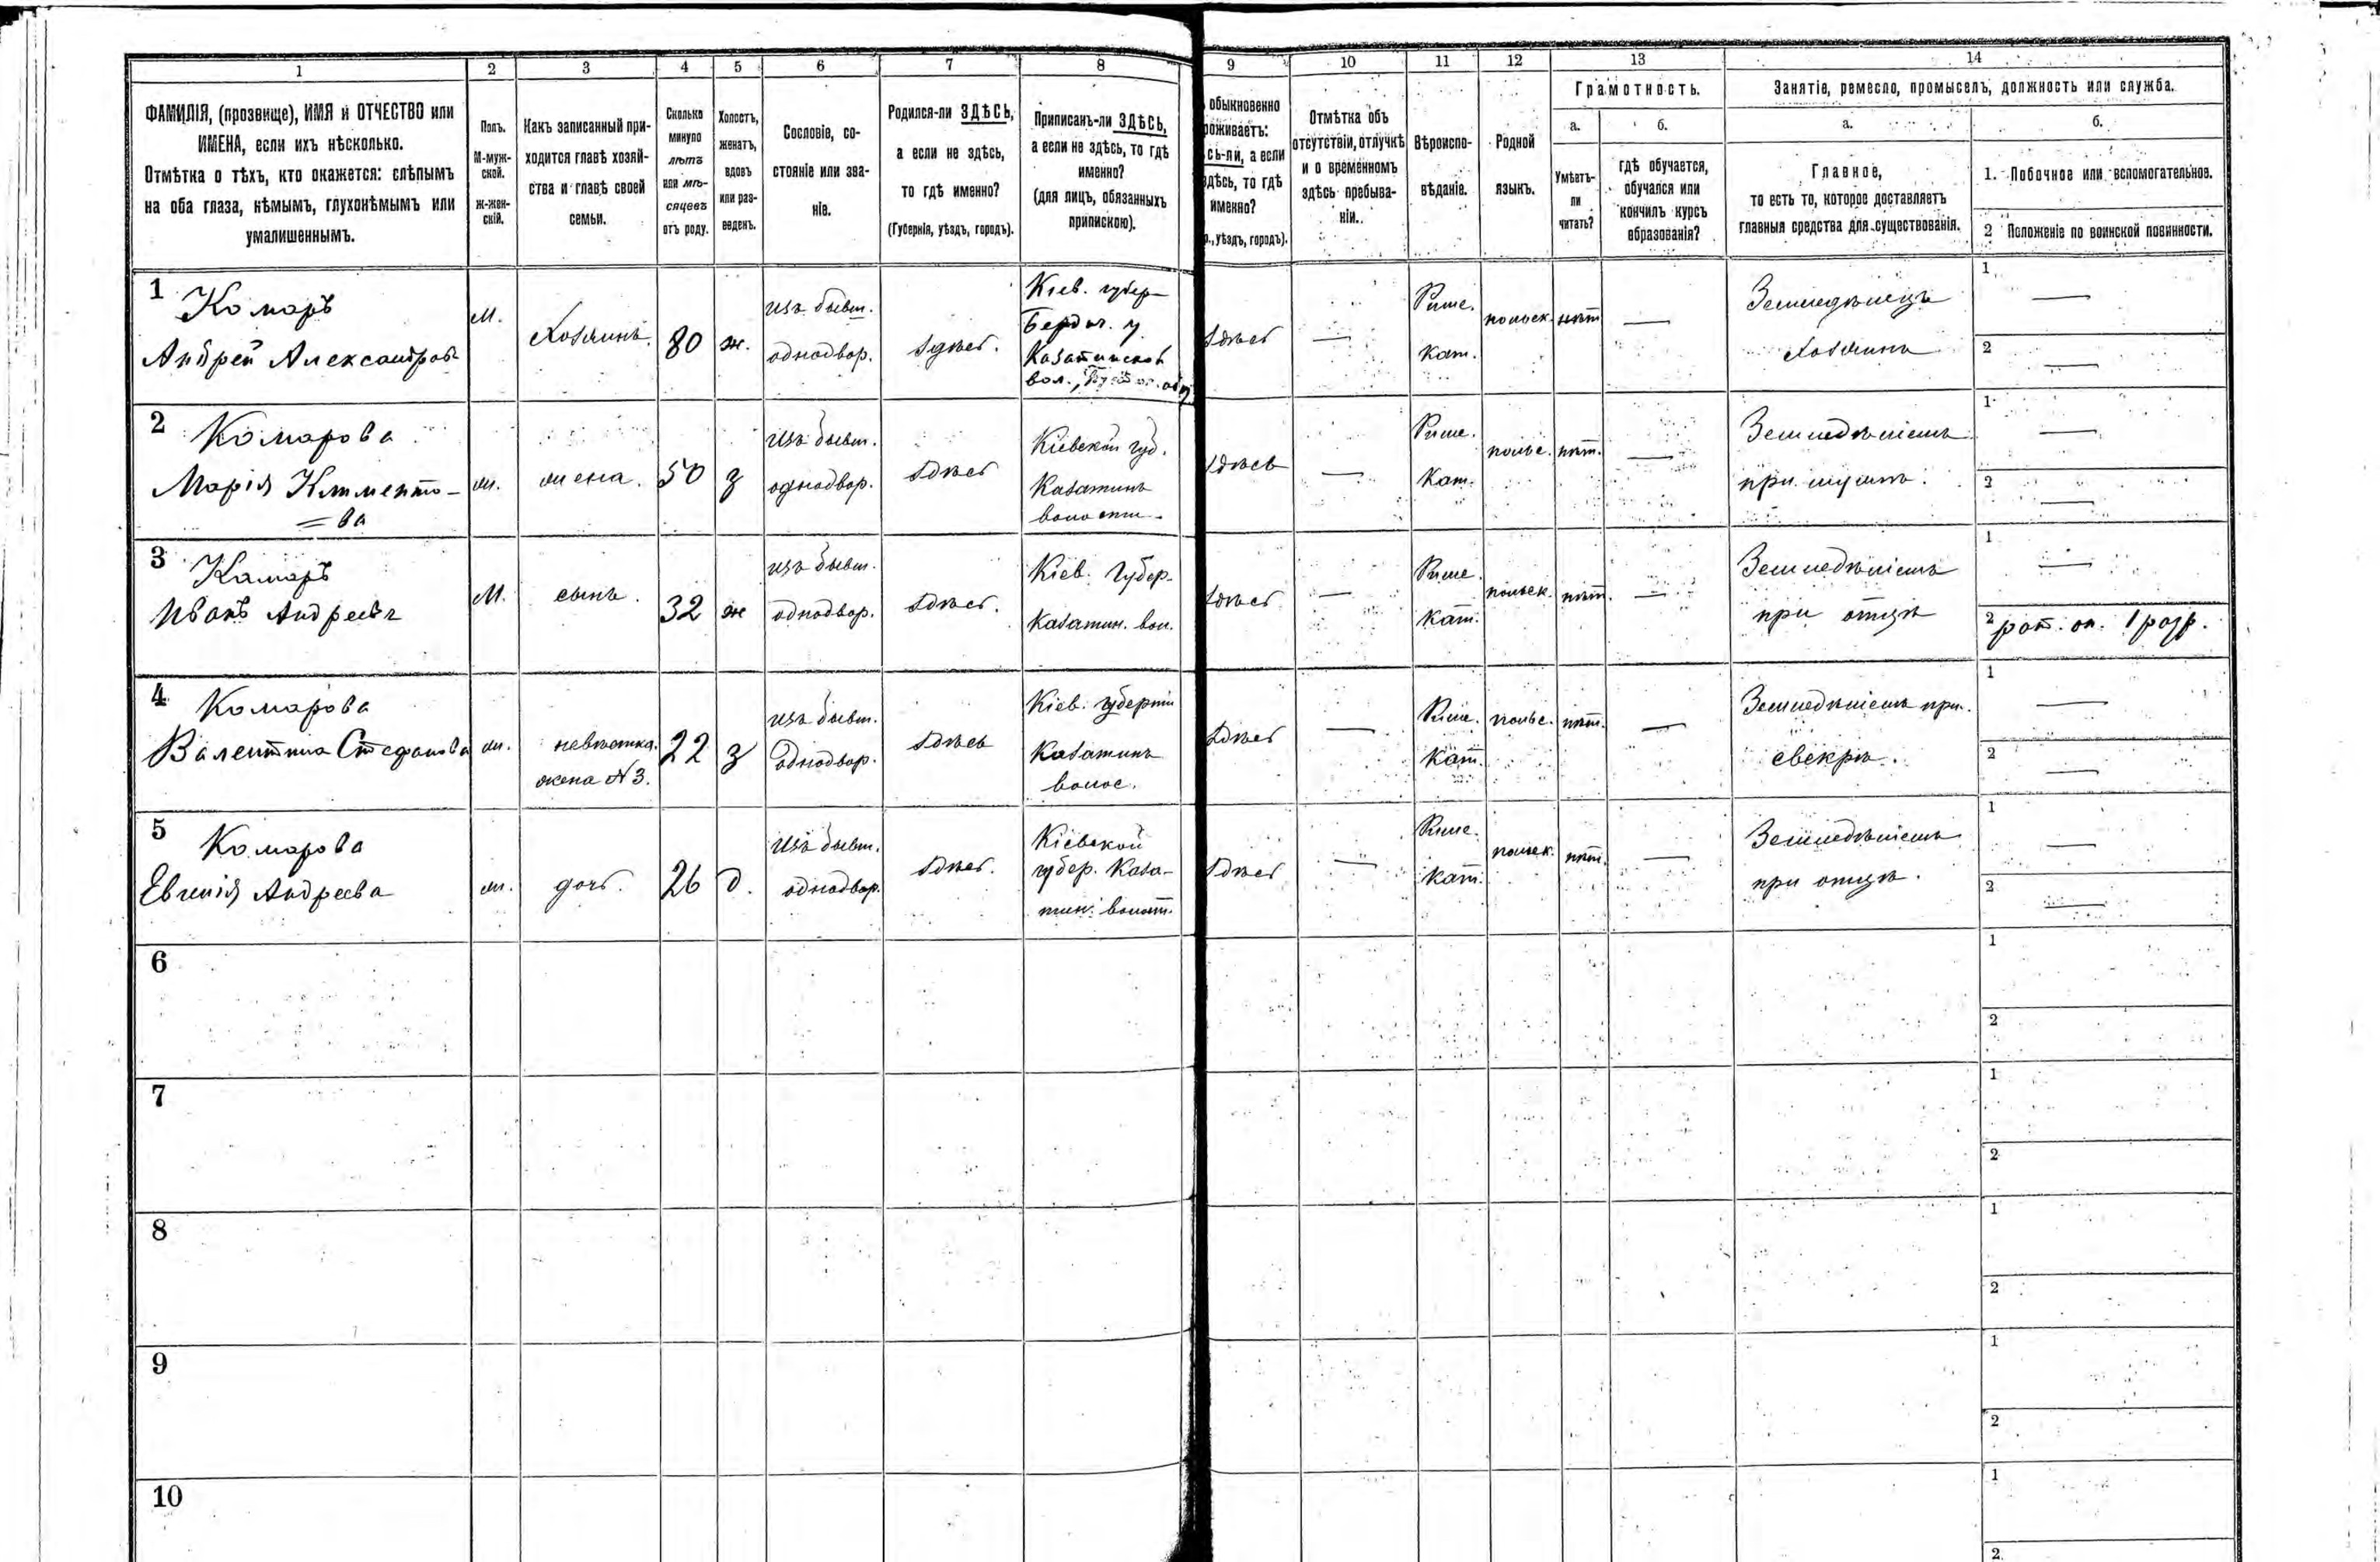 1 2 3 4 5 6 7 8 9 10 11 12 13 14
ФАМИЛІЯ, (прозвище), ИМЯ и ОТЧЕСТВО или
ИМЕНА, если ихъ нѣсколько.
Отмѣтка о тѣхъ, кто окажется: слѣпымъ
на оба глаза, нѣмымъ, глухонѣмымъ или
умалишеннымъ.
Полъ.
М-муж-
ской.
Ж-жен-
скій.
Какъ записанный при-
ходится главѣ хозяй-
ства и главѣ своей
семьи.
Сколько
минуло
лѣтъ
или мѣ-
сяцевъ
отъ роду.
Холостъ,
женатъ,
вдовъ
или раз-
веденъ.
Сословіе, со-
стояніе или зва-
ніе.
Родился-ли ЗДѢСЬ,
а если не здѣсь,
то гдѣ именно?
(Губернія, уѣздъ, городъ).
Приписанъ-ли ЗДѢСЬ,
а если не здѣсь, то гдѣ
именно?
(для лицъ, обязанныхъ
припискою).
обыкновенно
роживаетъ:
сь-ли, а если
здѣсь, то гдѣ
именно?
р., уѣздъ, городъ).
Отмѣтка объ
отсутствіи, отлучкѣ
и о временномъ
здѣсь пребыва-
ніи.
Вѣроиспо-
вѣданіе.
Родной
языкъ.
Грамотность.
а.
Умѣетъ-
ли
читать?
б.
гдѣ обучается,
обучался или
кончилъ курсъ
образованія?
Занятіе, ремесло, промыселъ, должность или служба.
а.
Главное,
то есть то, которое доставляетъ
главныя средства для существованія.
б.
1. Побочное или вспомогательное.
2 Положеніе по воинской повинности.
1
Комаръ
Андрей Александров
М.
Хозяинъ.
80
ж.
изъ бывш.
однодвор.
Здѣсь.
Кіев. губер
Бердич. у
Казатинской
вол.,
Здѣсь
—
Римс.
кат.
польск.
нѣт
—
Земледѣлецъ
Хозяинъ
1 —
2 —
2
Комарова
Марія Климентo-
=ва
ж.
жена.
50
з
изъ бывш.
однодвор.
Здѣсь
Кіевской губ.
Казатинъ
волости
Здѣсь
—
Римс.
Кат.
польс.
нѣт.
—
Земледѣліемъ
при мужѣ.
1 —
2 —
3
Камаръ
Иванъ Андреевъ
М.
сынъ.
32
ж
изъ бывш.
однодвор.
Здѣсь.
Кіев. Губер.
Казатин. вол.
Здѣсь
—
Римс.
Кат.
польск.
нѣт.
—
Земледѣліемъ
при отцѣ
1 —
2 рат. оп. 1 разр.
4
Комарова
Валентина Стефанова
ж.
невѣстка.
жена N 3.
22
з
изъ бывш.
однодвор.
Здѣсь
Кіев. губерніи
Казатинъ
волос.
Здѣсь
—
Римс.
Кат.
польс.
нѣт.
—
Земледѣліемъ при
свекрѣ.
1 —
2 —
5
Комарова
Евгенія Андреева
ж.
дочь.
26
д.
изъ бывш.
однодвор.
Здѣсь.
Кіевской
губер. Каза-
тин. волост.
Здѣсь
—
Римс.
Кат.
польск.
нѣт.
—
Земледѣліемъ
при отцѣ.
1 —
2 —
6
1
2
7
1
2
8
1
2
9
1
2
10
1
2